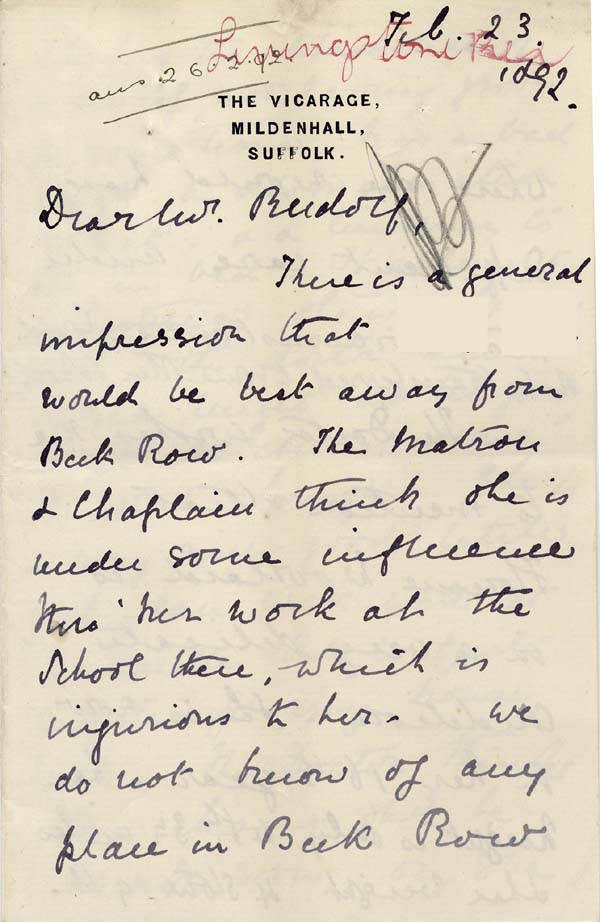 Feb. 23.
1892.
ans 26.2.92.
THE VICARAGE,
MILDENHALL,
SUFFOLK.
Dear Mr. Rudolf,
There is a general
impression that
would be best away from
Beck Row. The Matron
& Chaplain think she is
under some influence
thro' her work at the
School there, which is
injurious to her. We
do not know of any
place in Beck Row